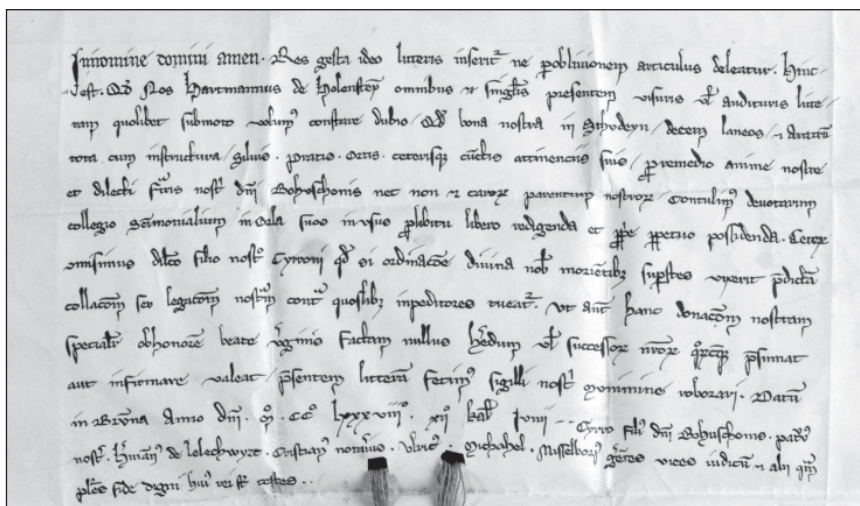 In nomine domini amen. Res gesta ideo litteris inserit̄ ne p̱ oblivionem articulus deleatur. Hinc
est. Qđ Nos Hartmannus de Holensteyn omnibus et singl̄is presentem visuris vl̄ audituris litte
ram quolibet submoto volum᷒ constare dubio / qđ bona nostra in / decem laneos / et aratrū
tota cum instructura / siluis. pratis. ortis. ceterisq; cūctis attinenciis suis / p̱ remedio anime nostre
et dilecti fr̄is nost̄ dn̄i Bohoschonis nec non et caroꝝ parentum nostroꝝ. Contulim᷒ devotarum
collegio sc̄imonialium in Orla suos in vsus p̱ libitu libero redigenda et p̱petuo possidenda. Ceteꝝ
omisimus dilc̄o filio nost̄o Cyrroni qđ si ordinac̄oe divina nob̄ moriētibꝫ sup̱stes vixerit p̄dictā
collac̄om seu legac̄om nost̄m cont̄ quoslibꝫ inpeditores tueat̄. Vt aut̄ hanc donac̄om nostram
specialit̄ ob honorē beate v̄ginis factam nullus h̄edum vl̄ successoꝝ nr̄oꝝ p̄sumat
aut infirmare valeat / p̄sentem litterā fecim᷒ sigilli nost̄ mvnimine roborari. Datū
in Brvna Anno dn̄i. m̊. CC̊ Lxxxviii̊. xii̊ kal̄ Ivnii -- Cyrro fili᷒ dn̄i Bohuschonis. patr᷒
nost̄. H̄man᷒ de Lelechwyz. Cristian᷒ notari᷒. Vlric᷒. Michahel. ḡentes vices iudicū et alii qm̄
pl̄es fide digni hui᷒ rei st̄ testes..